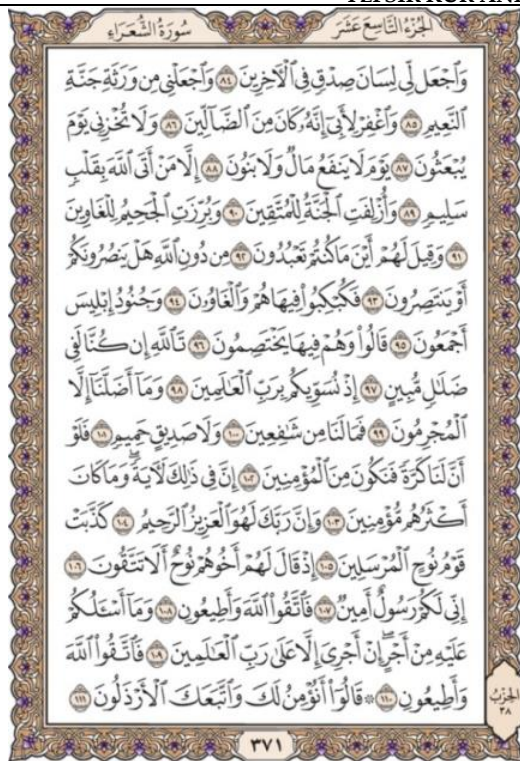 سُورَةُ الشُّعَرَاءِ
الجُزْءُ التَّاسِعَ عَشَرَ
وَٱجۡعَل لِّي لِسَانَ صِدۡقٖ فِي ٱلۡأٓخِرِينَ ٨٤ وَٱجۡعَلۡنِي مِن وَرَثَةِ جَنَّةِ
ٱلنَّعِيمِ ٨٥ وَٱغۡفِرۡ لِأَبِيٓ إِنَّهُۥ كَانَ مِنَ ٱلضَّآلِّينَ ٨٦ وَلَا تُخۡزِنِي يَوۡمَ
يُبۡعَثُونَ ٨٧ يَوۡمَ لَا يَنفَعُ مَالٞ وَلَا بَنُونَ ٨٨ إِلَّا مَنۡ أَتَى ٱللَّهَ بِقَلۡبٖ
سَلِيمٖ ٨٩ وَأُزۡلِفَتِ ٱلۡجَنَّةُ لِلۡمُتَّقِينَ ٩٠ وَبُرِّزَتِ ٱلۡجَحِيمُ لِلۡغَاوِينَ
٩١ وَقِيلَ لَهُمۡ أَيۡنَ مَا كُنتُمۡ تَعۡبُدُونَ ٩٢ مِن دُونِ ٱللَّهِ هَلۡ يَنصُرُونَكُمۡ
أَوۡ يَنتَصِرُونَ ٩٣ فَكُبۡكِبُواْ فِيهَا هُمۡ وَٱلۡغَاوُۥنَ ٩٤ وَجُنُودُ إِبۡلِيسَ
أَجۡمَعُونَ ٩٥ قَالُواْ وَهُمۡ فِيهَا يَخۡتَصِمُونَ ٩٦ تَٱللَّهِ إِن كُنَّا لَفِي
ضَلَٰلٖ مُّبِينٍ ٩٧ إِذۡ نُسَوِّيكُم بِرَبِّ ٱلۡعَٰلَمِينَ ٩٨ وَمَآ أَضَلَّنَآ إِلَّا
ٱلۡمُجۡرِمُونَ ٩٩ فَمَا لَنَا مِن شَٰفِعِينَ ١٠٠ وَلَا صَدِيقٍ حَمِيمٖ ١٠١ فَلَوۡ
أَنَّ لَنَا كَرَّةٗ فَنَكُونَ مِنَ ٱلۡمُؤۡمِنِينَ ١٠٢ إِنَّ فِي ذَٰلِكَ لَأٓيَةٗۖ وَمَا كَانَ
أَكۡثَرُهُم مُّؤۡمِنِينَ ١٠٣ وَإِنَّ رَبَّكَ لَهُوَ ٱلۡعَزِيزُ ٱلرَّحِيمُ ١٠٤ كَذَّبَتۡ
قَوۡمُ نُوحٍ ٱلۡمُرۡسَلِينَ ١٠٥ إِذۡ قَالَ لَهُمۡ أَخُوهُمۡ نُوحٌ أَلَا تَتَّقُونَ ١٠٦
إِنِّي لَكُمۡ رَسُولٌ أَمِينٞ ١٠٧ فَٱتَّقُواْ ٱللَّهَ وَأَطِيعُونِ ١٠٨ وَمَآ أَسۡـَٔلُكُمۡ
عَلَيۡهِ مِنۡ أَجۡرٍۖ إِنۡ أَجۡرِيَ إِلَّا عَلَىٰ رَبِّ ٱلۡعَٰلَمِينَ ١٠٩ فَٱتَّقُواْ ٱللَّهَ
وَأَطِيعُونِ ١١٠ ۞ قَالُوٓاْ أَنُؤۡمِنُ لَكَ وَٱتَّبَعَكَ ٱلۡأَرۡذَلُونَ ١١١
الحِزْبُ
٣٨
٣٧١